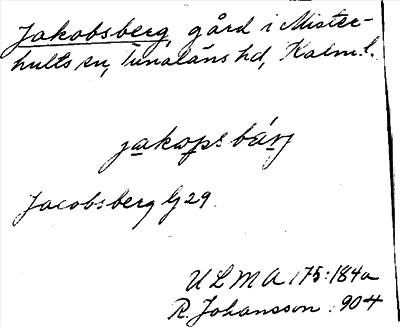 Jakobsberg, gård i Mister-
hults sn, Tunaläns hd, Kalm. l.
jakopsbárj
Jacobsberg G 29.
ULMA 175:184a
R. Johansson : 904